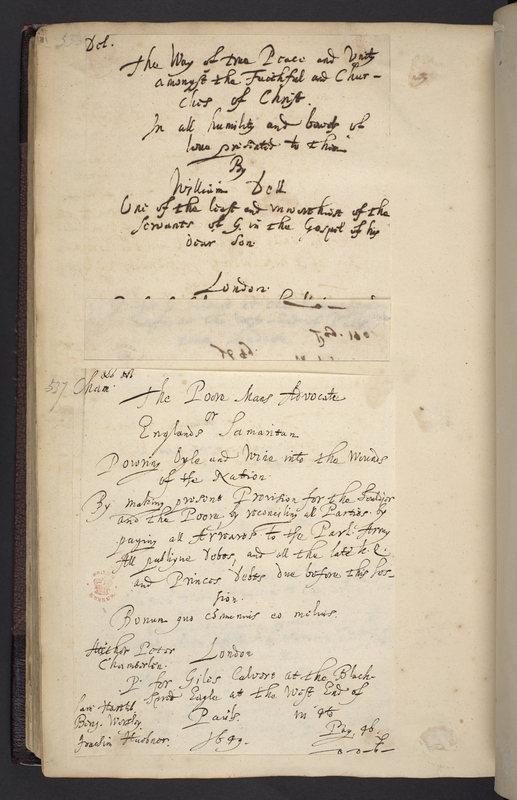 Del.
The Way of true Peace and Unity
amongst the Faithful and Chur-
ches of Christ.
In all humility and bowels of
love presented to them
By
William Dell
One of the least and unworthiest of the
Servants of G. in the Gospel of his
dear Son
London.
537 Cham
The Poore Mans Advocate
or
Englands Samaritan
Powring Oyle and Wine into the Wounds
of the Nation.
By making present Provision for the Souldier
and the Poore by reconciling all Parties. By
paying all Arreares to the Parl. Army
All publique Debts, and all the late K. Q.
and Princes Debts due before this Ses-
sion.
Bonum quo communius eo melius.
Author Peter London
Chamberlen.
P. for Giles Calvert at the Black-
Spred Eagle at the West End of
Pauls. in 4to
Sam Hartl.
Benj. Worsley
Joachim Hubner. 1649.
Pag. 46.